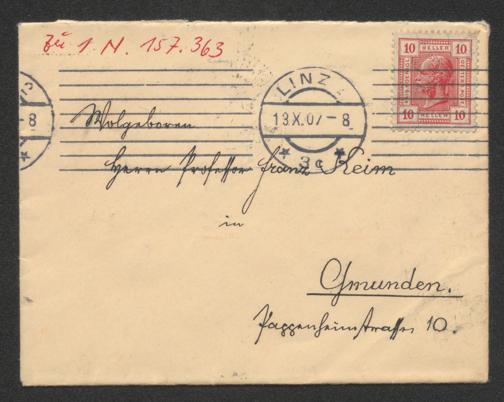 Zu I N. 157.363
10 HELLER 10
LINZ
19.X.07-8
* 3c *
-8
10 HELLER 10
Wolgeboren
Herrn Professor Franz Keim
in
Gmunden.
Pappenheimstrasse 10.